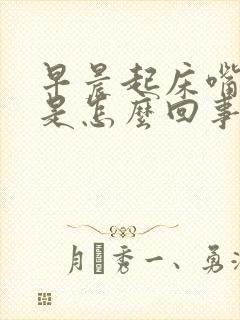 早晨起床嘴
是怎麼回事
月 秀一、勇氵